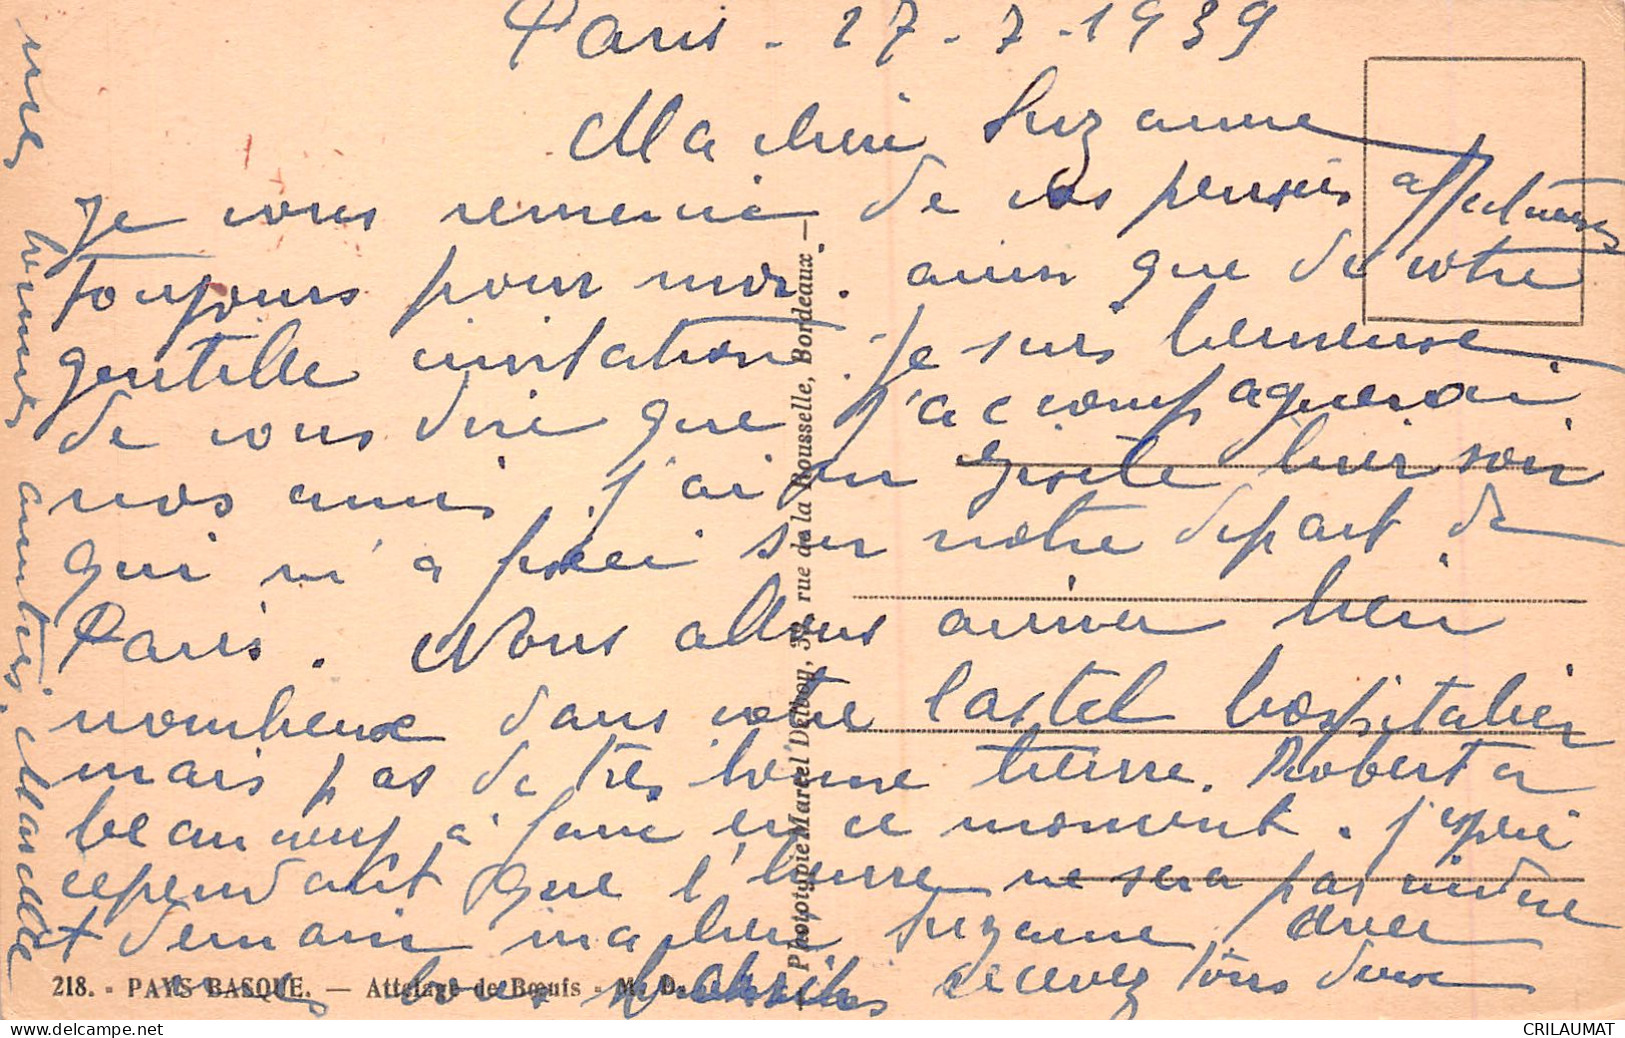 Paris - 27-7-1939
Ma chère Suzanne
Je vous remercie de vos pensées affectueuses
toujours pour moi. ainsi que de votre
gentille invitation. Je suis heureuse
de vous dire que j'accompagnerai
nos amis. j'ai vu Gisèle hier soir
qui m'a fixée sur notre départ de
Paris. Nous allons arriver bien
nombreux dans votre Castel hospitalier
mais pas de très bonne heure. Robert a
beaucoup à faire en ce moment. j'espère
cependant que l'heure ne sera pas indue
demain ma chère Suzanne avec
recevez tous deux
mes bonnes amitiés. Marcelle
218. - PAYS BASQUE. — Attelage de Bœufs - M. D.
Phototypie Marcel Delboy, rue de la Rousselle, Bordeaux. —
CRILAUMAT